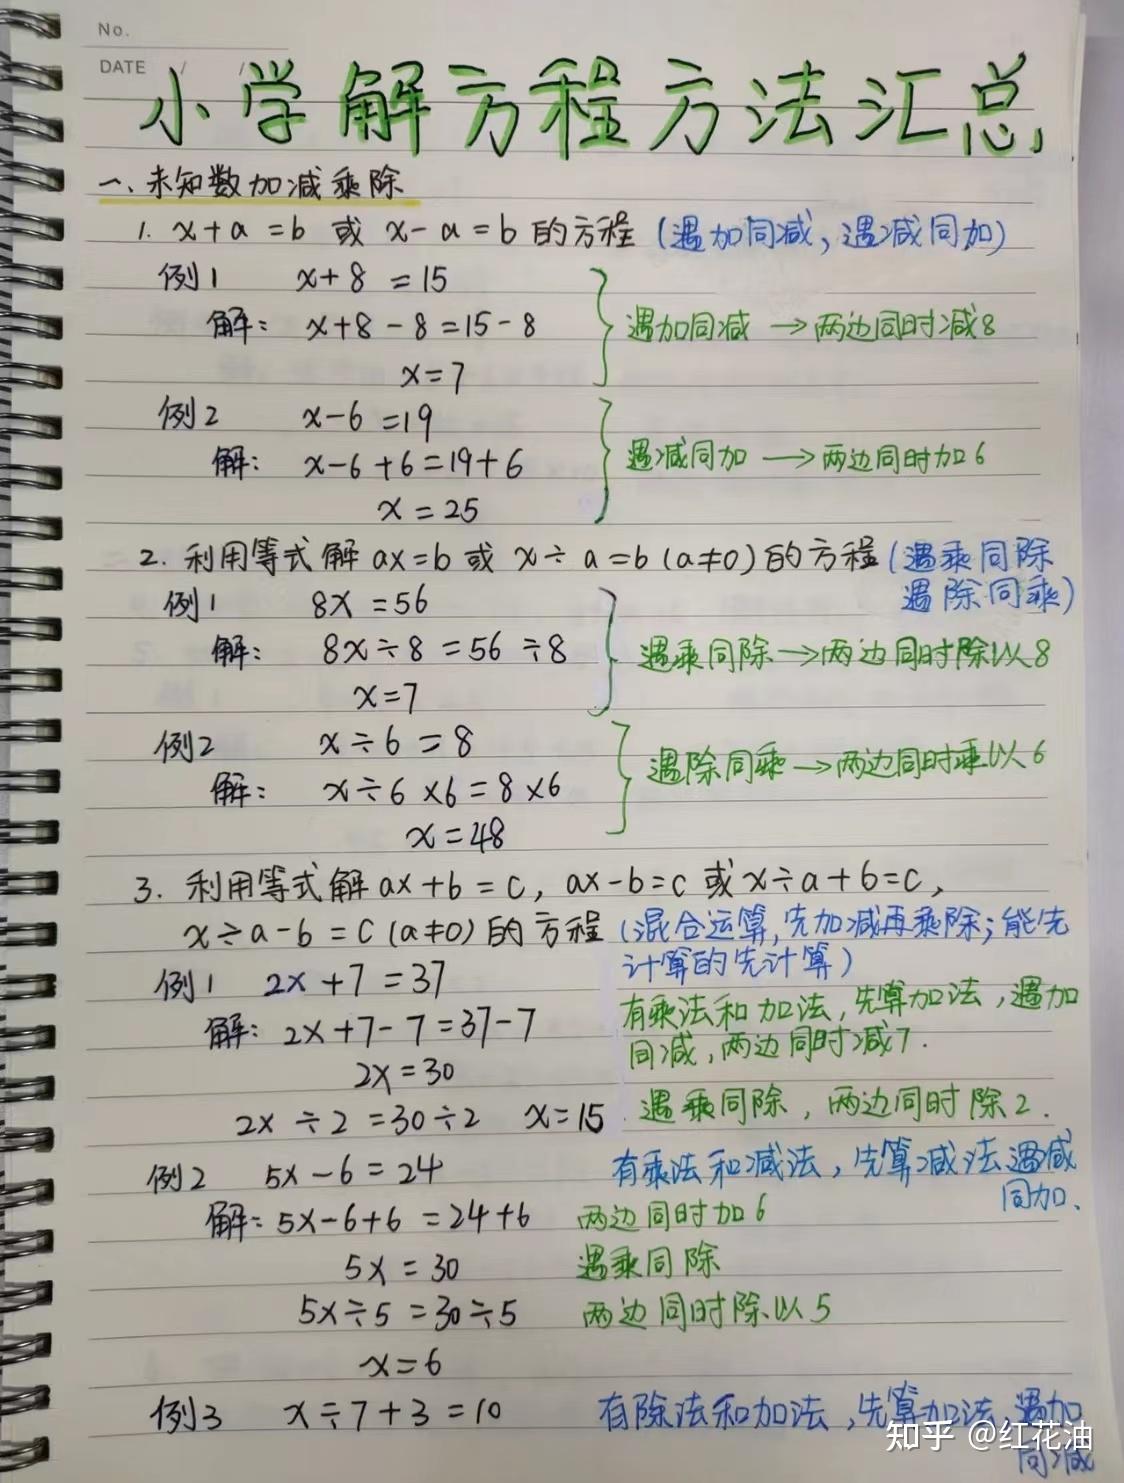 No.
DATE / /
小学解方程方法汇总
一、未知数加减乘除
1. x+a=b 或 x-a=b 的方程 (遇加同减, 遇减同加)
例1 x+8=15
解: x+8-8=15-8 遇加同减 → 两边同时减8
x=7
例2 x-6=19
解: x-6+6=19+6 遇减同加 → 两边同时加6
x=25
2. 利用等式解 ax=b 或 x÷a=b (a≠0) 的方程 (遇乘同除
遇除同乘)
例1 8x=56
解: 8x÷8=56÷8 遇乘同除 → 两边同时除以8
x=7
例2 x÷6=8
解: x÷6×6=8×6 遇除同乘 → 两边同时乘以6
x=48
3. 利用等式解 ax+b=c, ax-b=c 或 x÷a+b=c,
x÷a-b=c (a≠0) 的方程 (混合运算, 先加减再乘除; 能先
计算的先计算)
例1 2x+7=37
有乘法和加法, 先算加法, 遇加
解: 2x+7-7=37-7
同减, 两边同时减7.
2x=30
2x÷2=30÷2 x=15. 遇乘同除, 两边同时除2.
例2 5x-6=24 有乘法和减法, 先算减法遇减
同加、
解: 5x-6+6=24+6 两边同时加6
5x=30 遇乘同除
5x÷5=30÷5 两边同时除以5
x=6
例3 x÷7+3=10 有除法和加法, 先算加法, 遇加
同减
知乎 @红花油